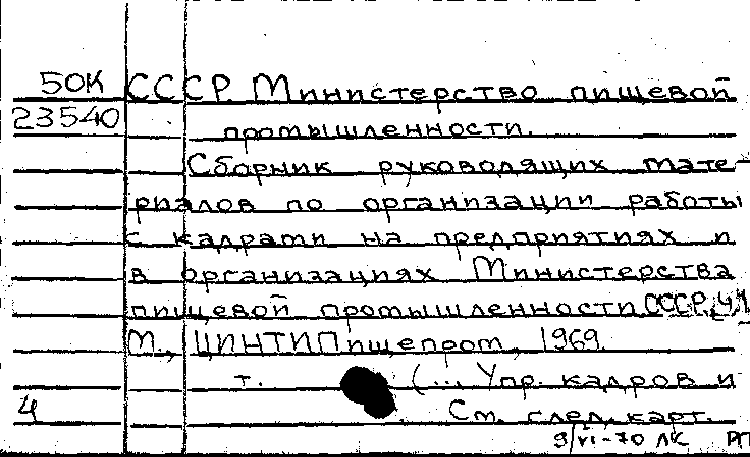 50К СССР. Министерство пищевой
23540 промышленности.
Сборник руководящих мате-
риалов по организации работы
с кадрами на предприятиях и
в организациях Министерства
пищевой промышленности СССР. Ч.1
М., ЦИНТИПищепром, 1969.
т. (... Упр. кадров и
4 См. след. карт.
9/VI-70 ЛК РП